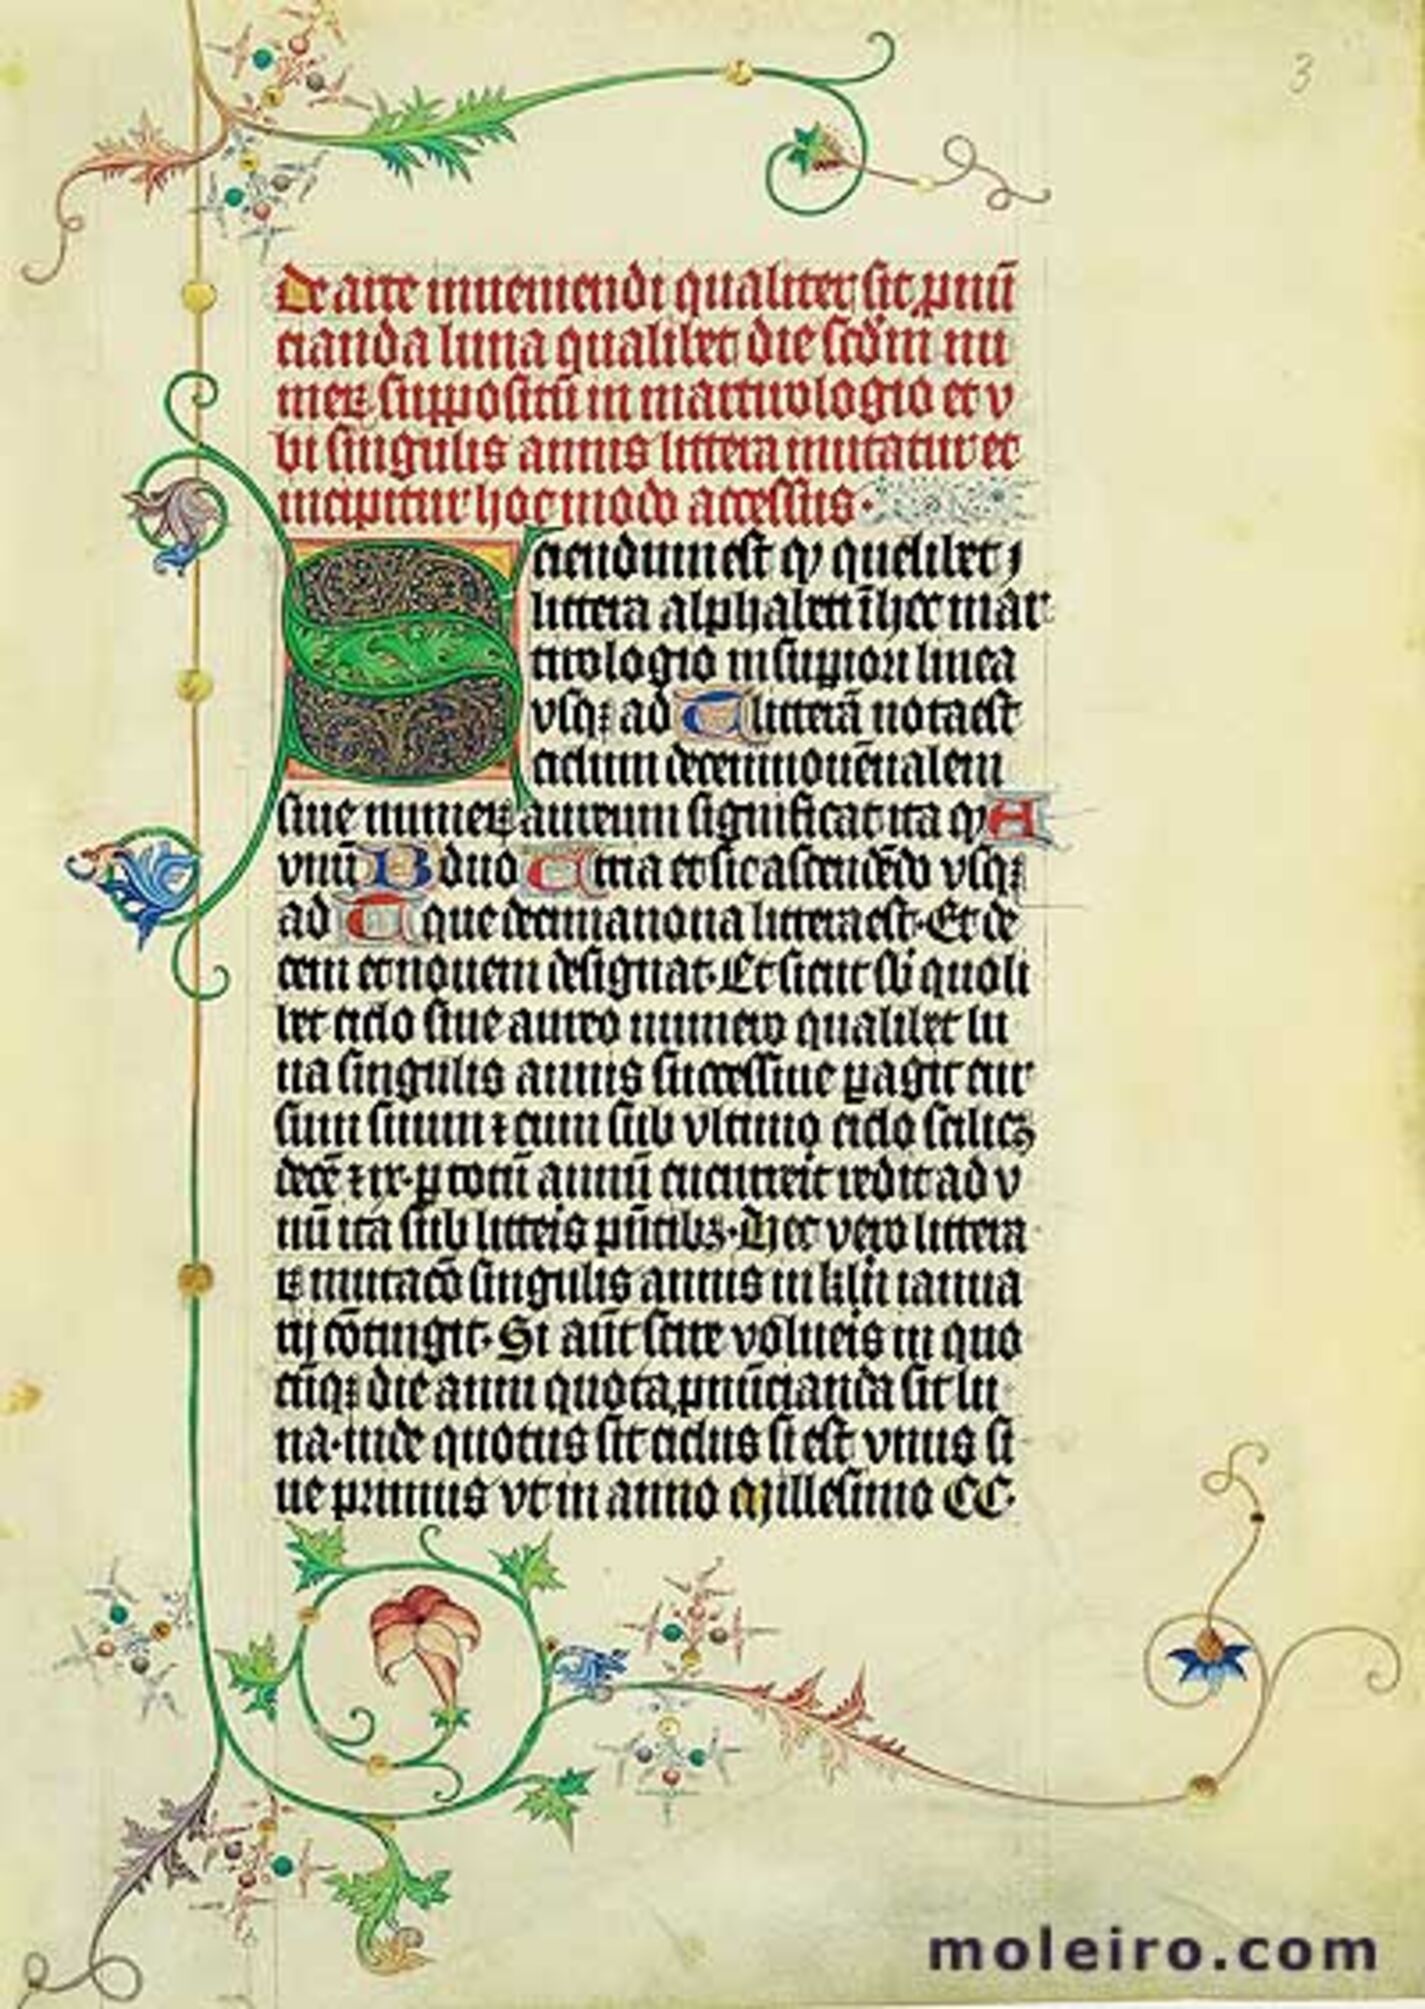 3
De arte inueniendi qualiter sit ꝓnūⁿ
cianda luna qualibet die scđm nu
merꝝ suppositū in martirologio et v
bi singulis annis littera mutatur et
incipitur hoc modo accessus·
Sciendum est ꝙ quelibet
littera alphabeti ī hoc mar
tirologio in supiori linea
vsqꝫ ad C litterā nota est
ciclum decemnouēnalem
siue numerꝝ aureum significat ita ꝙ A
vnū B duo C tria et sic ascendēdo vsqꝫ
ad C que decimanona littera est· Et de
cem et nouem designat· Et sicut sb quoli
bet ciclo siue aureo numero qualibet lu
na singulis annis successiue ꝑagit cur
sum suum ⁊ cum sub vltimo ciclo scilicꝫ
decē ⁊ ix· ꝑ totū annū cucurreit redit ad v
nū ita sub litteis pn̄tibꝫ· Hec vero littera
ꝝ mutacō singulis annis in kl̄n ianua
rij cōtingit· Si aūt scire volueis in quo
cūqꝫ die anni quota ꝓnūcianda sit lu
na· vide quotus sit ciclus si est vnus si
ue primus vt in anno Millesimo CC·
moleiro.com